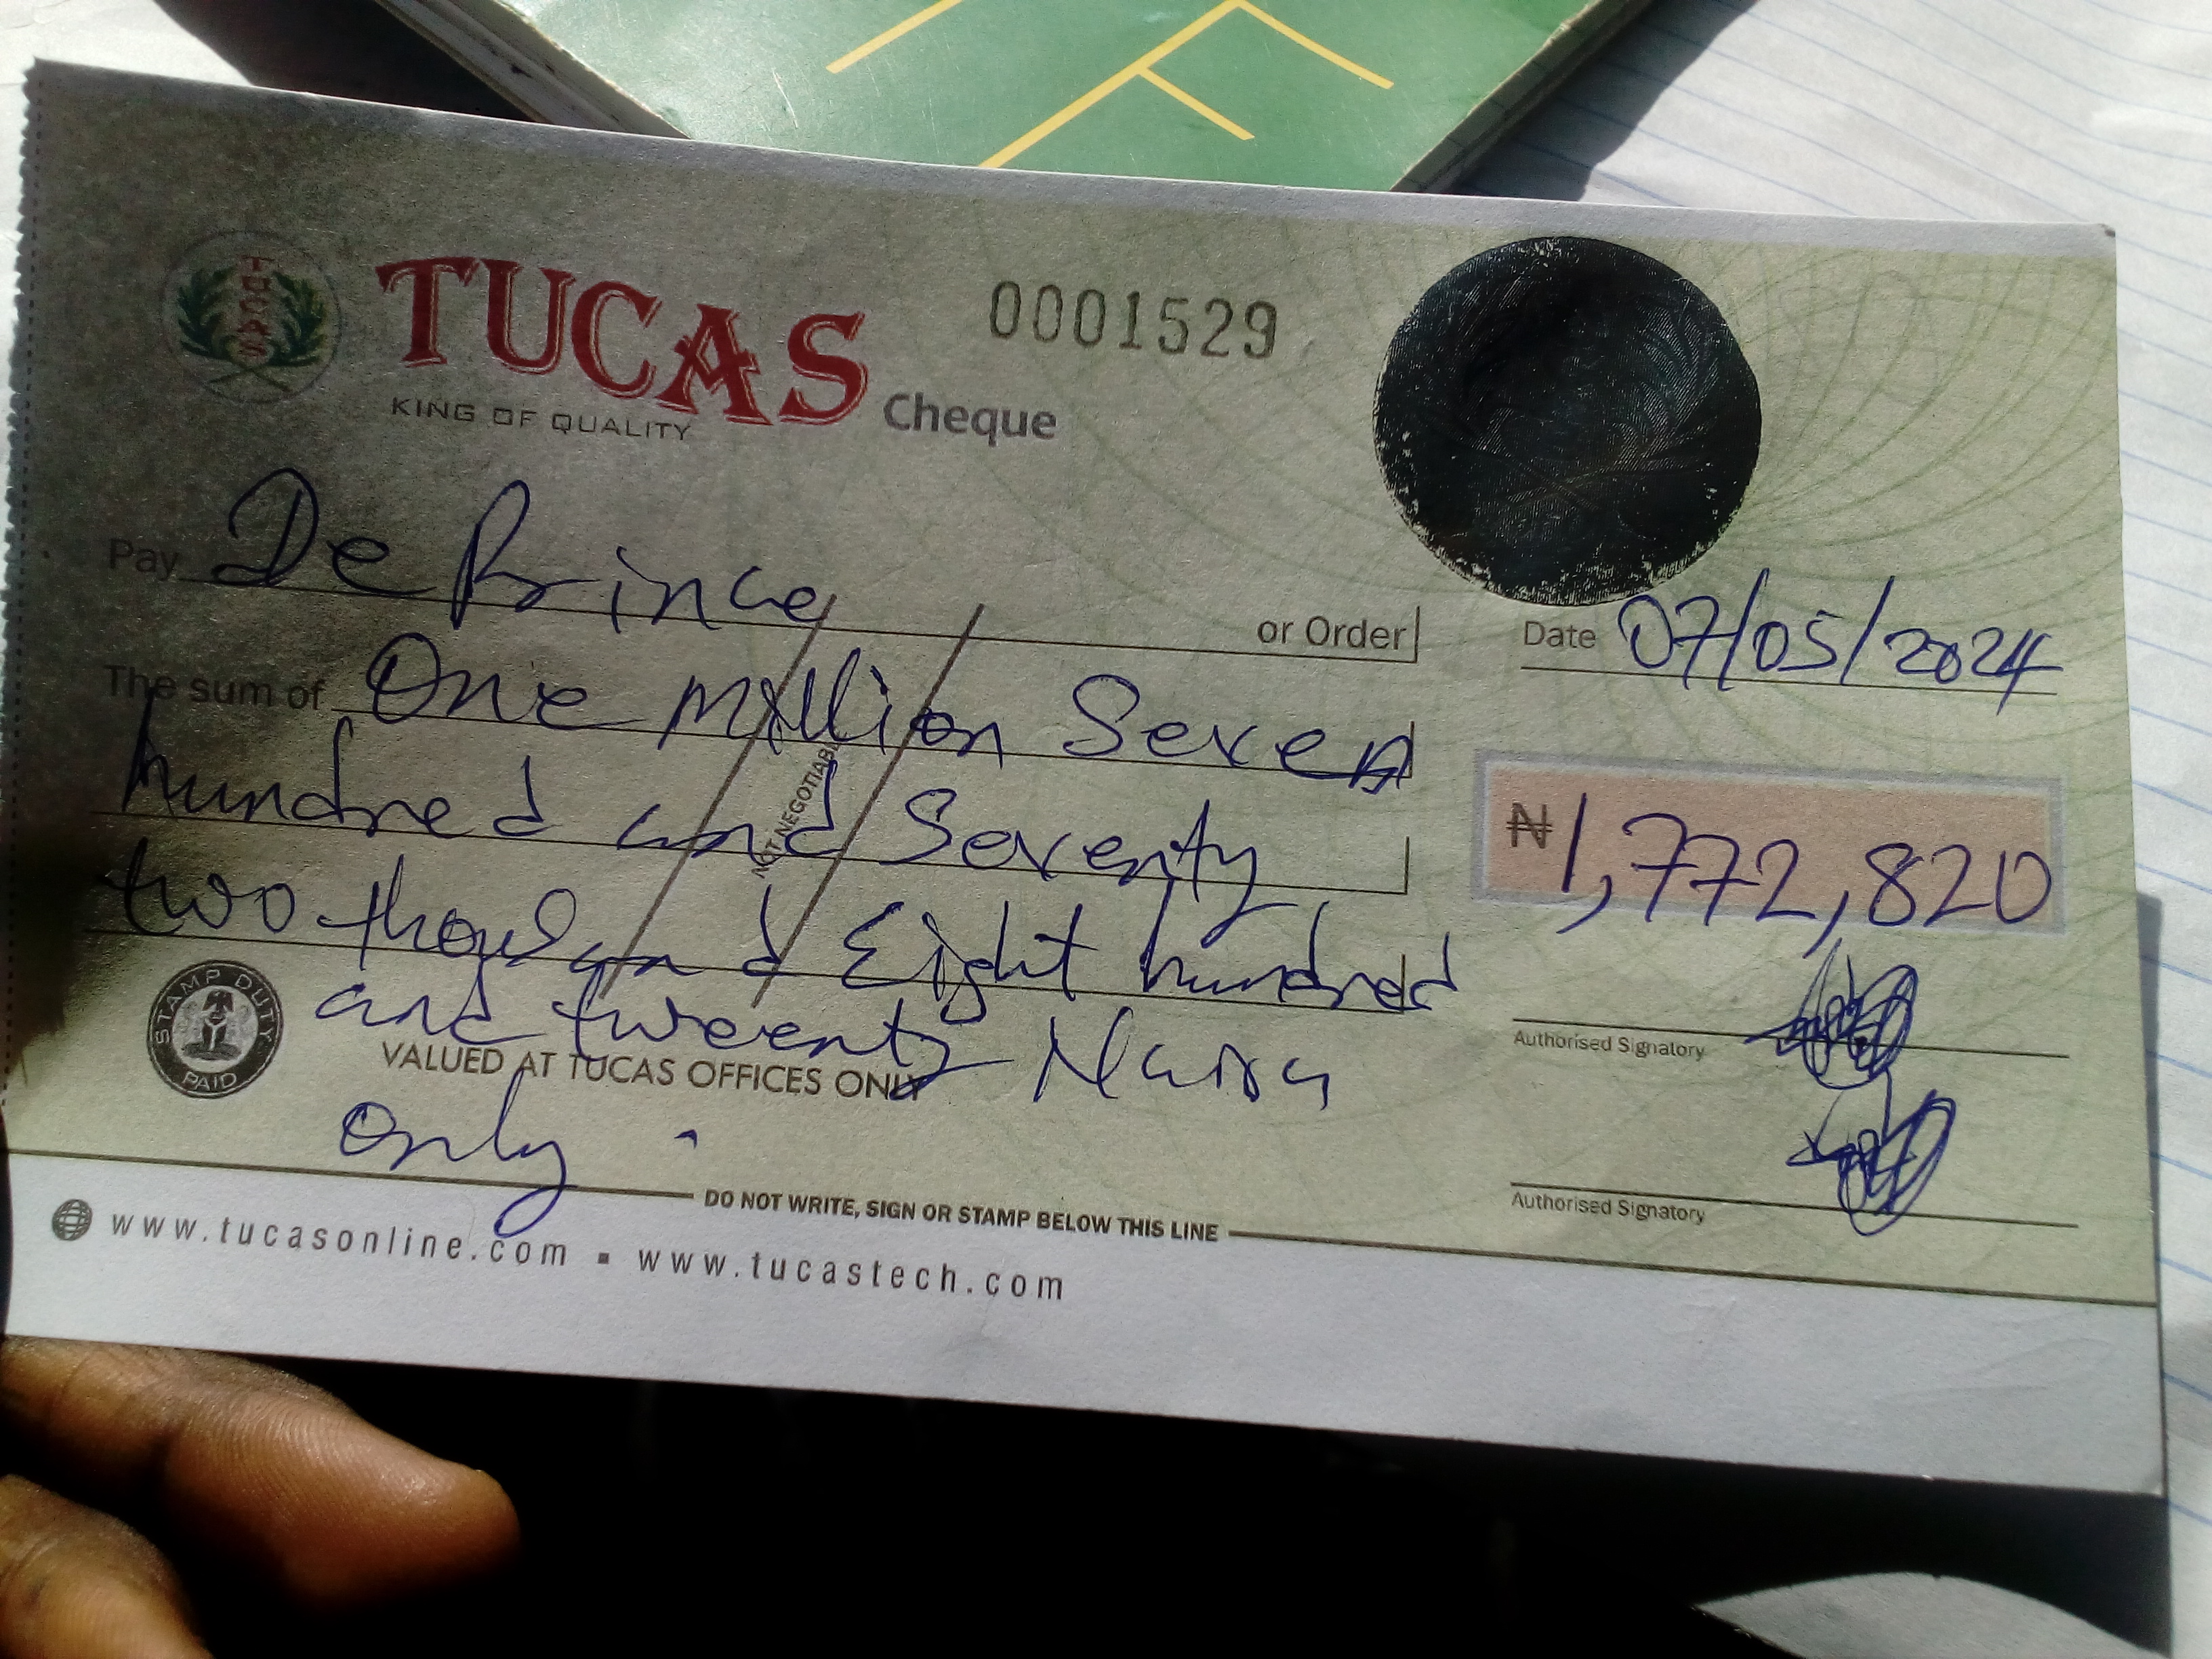 TUCAS
TUCAS
KING OF QUALITY
Cheque
0001529
Pay De Prince or Order
Date 07/05/2024
The sum of One Million Seven
hundred and Seventy
two thousand Eight hundred
and tweenty Naira
only.
NOT NEGOTIABLE
₦1,772,820
STAMP DUTY
PAID
VALUED AT TUCAS OFFICES ONLY
Authorised Signatory
Authorised Signatory
DO NOT WRITE, SIGN OR STAMP BELOW THIS LINE
www.tucasonline.com ▪ www.tucastech.com